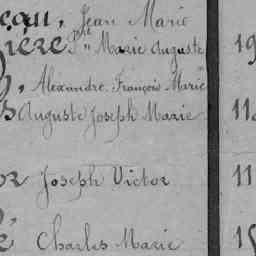 eau, Jean Marie
ière Pre Marie Auguste 19
, Alexandre François Marie
s Auguste Joseph Marie 11
or Joseph Victor 11
é Charles Marie 15